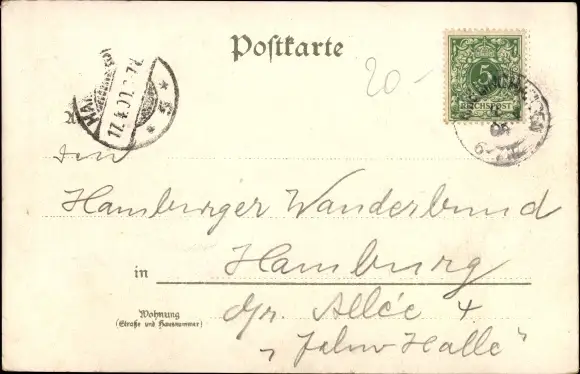 Postkarte
20-
5
REICHSPOST
17.4.01.
5
den
Hamburger Wanderbund
in Hamburg
gr. Allée 4
Wohnung
(Straße und Hausnummer)
„Jahn Halle"